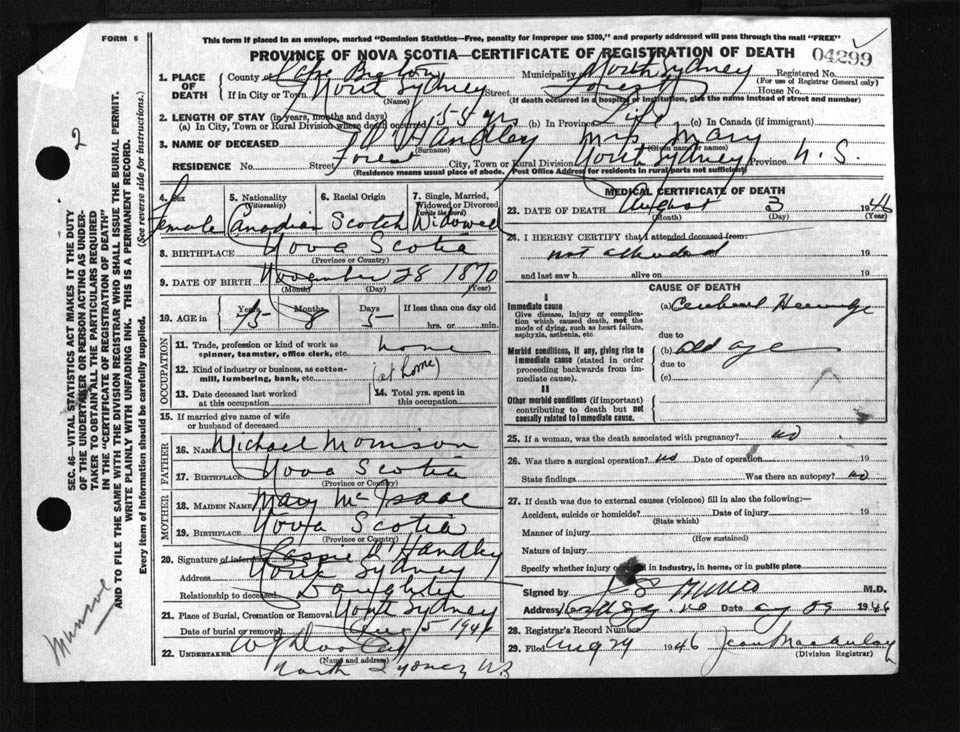 FORM 6
This form if placed in an envelope, marked "Dominion Statistics—Free, penalty for improper use $300," and properly addressed will pass through the mail "FREE"
PROVINCE OF NOVA SCOTIA—CERTIFICATE OF REGISTRATION OF DEATH
04299
1. PLACE OF DEATH
County of Cape Breton Municipality North Sydney Registered No.
(For use of Registrar General only)
If in City or Town North Sydney Street Forest House No.
(Name) (If death occurred in a hospital or institution, give the name instead of street and number)
2. LENGTH OF STAY (in years, months and days)
(a) In City, Town or Rural Division where death occurred 54 yrs (b) In Province Life (c) In Canada (if immigrant)
3. NAME OF DECEASED O'Handley Mrs Mary
(Surname) (Given names)
RESIDENCE No. Street Forest City, Town or Rural Division North Sydney Province N.S.
(Residence means usual place of abode. Post Office Address for residents in rural parts not sufficient)
4. Sex Female
5. Nationality (Citizenship) Canadian
6. Racial Origin Scotch
7. Single, Married, Widowed or Divorced (write the word) Widowed
8. BIRTHPLACE Nova Scotia
(Province or Country)
9. DATE OF BIRTH November 28 1870
(Month) (Day) (Year)
10. AGE in Years 75 Months 8 Days 5 If less than one day old
hrs. or min.
OCCUPATION
11. Trade, profession or kind of work as spinner, teamster, office clerk, etc. none
12. Kind of industry or business, as cotton-mill, lumbering, bank, etc. (at home)
13. Date deceased last worked at this occupation
14. Total yrs. spent in this occupation
15. If married give name of wife or husband of deceased
FATHER
16. NAME Michael Morrison
17. BIRTHPLACE Nova Scotia
(Province or Country)
MOTHER
18. MAIDEN NAME Mary McIsaac
19. BIRTHPLACE Nova Scotia
(Province or Country)
20. Signature of informant Cassie O'Handley
Address North Sydney
Relationship to deceased Daughter
21. Place of Burial, Cremation or Removal North Sydney
Date of burial or removal Aug 5 1946
22. UNDERTAKER W J Dooley
(Name and address)
North Sydney N.S.
MEDICAL CERTIFICATE OF DEATH
23. DATE OF DEATH August 3 1946
(Month) (Day) (Year)
24. I HEREBY CERTIFY that I attended deceased from:
not attended 19
19
and last saw h alive on 19
CAUSE OF DEATH
I
Immediate cause
Give disease, injury or complication which caused death, not the mode of dying, such as heart failure, asphyxia, asthenia, etc.
(a) Cerebral Hemorrhage
due to
Morbid conditions, if any, giving rise to immediate cause (stated in order proceeding backwards from immediate cause).
(b) old age
due to
(c)
II
Other morbid conditions (if important) contributing to death but not causally related to immediate cause.
25. If a woman, was the death associated with pregnancy? no
26. Was there a surgical operation? no Date of operation 19
State findings Was there an autopsy? no
27. If death was due to external causes (violence) fill in also the following:—
Accident, suicide or homicide? Date of injury 19
(State which)
Manner of injury
(How sustained)
Nature of injury
Specify whether injury occurred in industry, in home, or in public place
Signed by Munro M.D.
Address Date 1946
28. Registrar's Record Number
29. Filed Aug 29 1946 Jean MacAulay
(Division Registrar)
SEC. 46—VITAL STATISTICS ACT MAKES IT THE DUTY
OF THE UNDERTAKER OR PERSON ACTING AS UNDERTAKER TO OBTAIN ALL THE PARTICULARS REQUIRED
IN THE "CERTIFICATE OF REGISTRATION OF DEATH"
AND TO FILE THE SAME WITH THE DIVISION REGISTRAR WHO SHALL ISSUE THE BURIAL PERMIT.
WRITE PLAINLY WITH UNFADING INK. THIS IS A PERMANENT RECORD.
Every item of Information should be carefully supplied. (See reverse side for instructions.)
2
Munroe